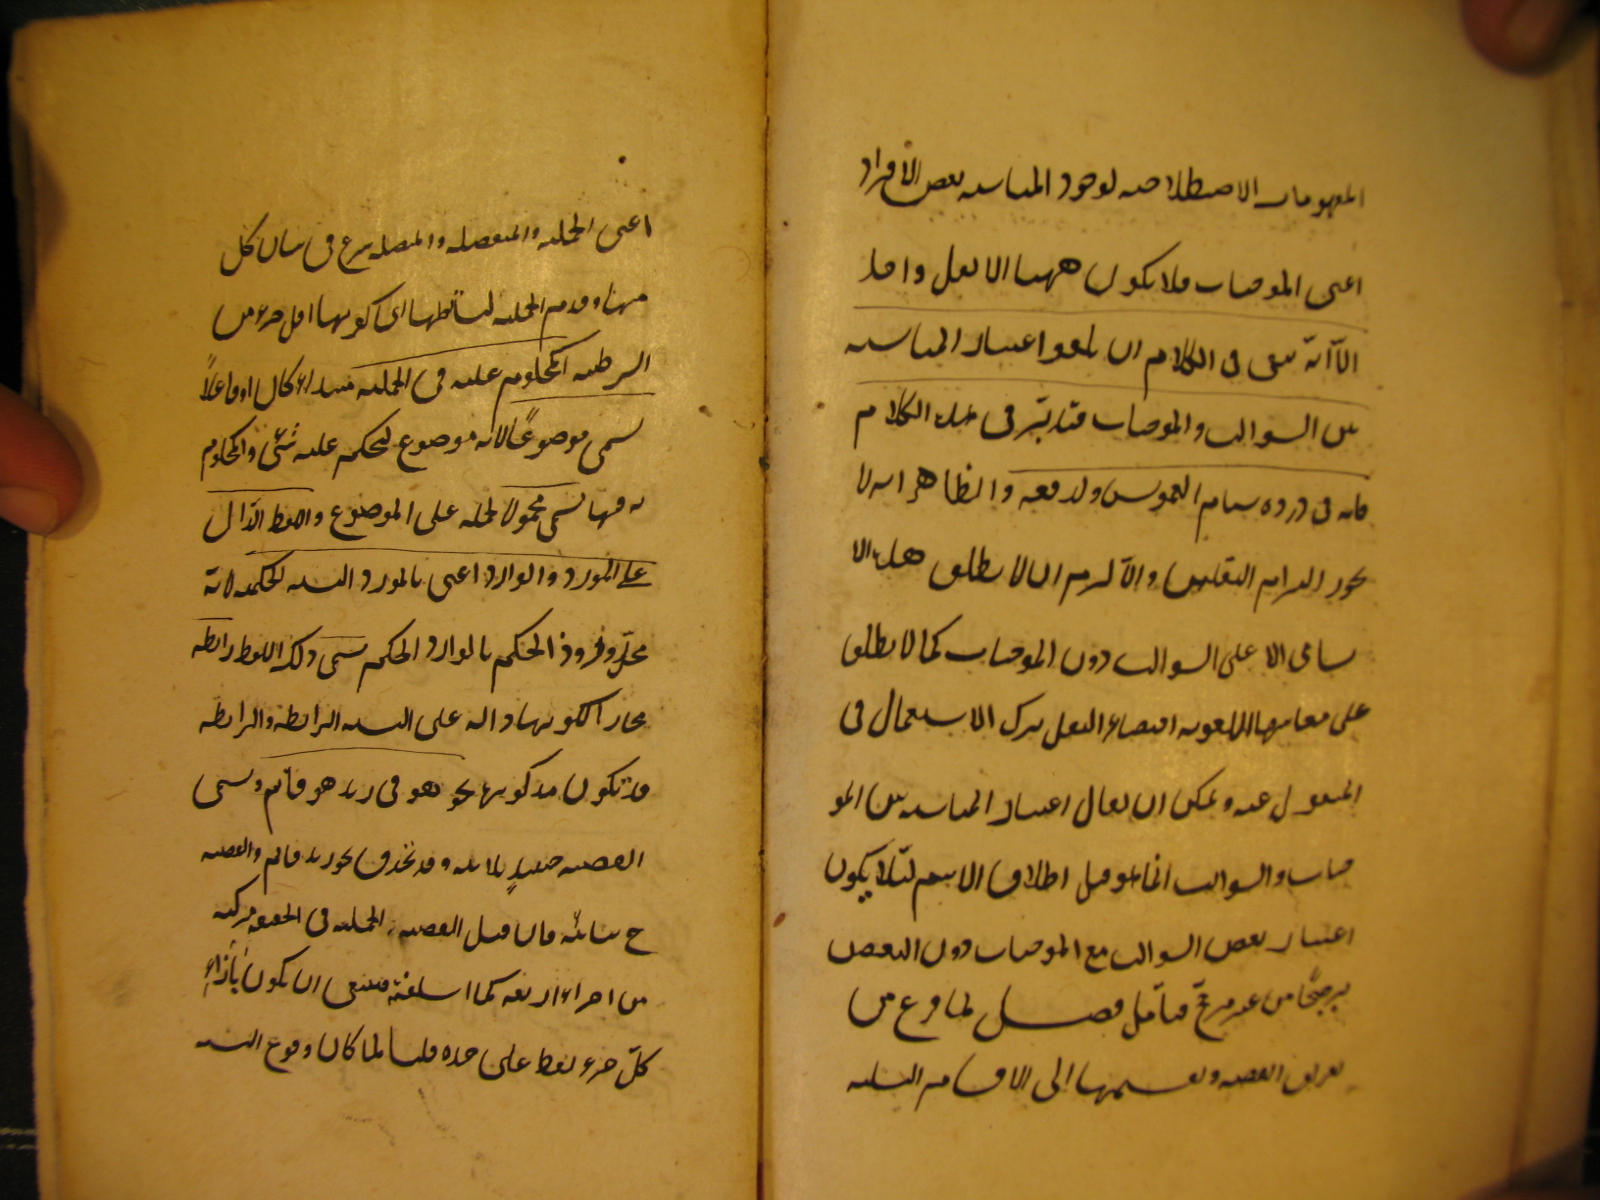 المفهومات الاصطلاحيه لوجود المناسبه بعض الافراد
اعنى الموجبات فلا يكون ههنا الا نقل واحد
الا انه بقى فى الكلام ان يلغو اعتبار المناسبه
بين السوالب والموجبات فتدبّر فى هذا الكلام
فانه فى دوره سيامه النفوس ولدفعه والظاهر انه لا
يجوز التزام النقلين والا لزم ان لا يطلق هذه الا
سامى الا على السوالب دون الموجبات كما لا يطلق
على معانيها اللغويه اقتضاء النقل ترك الاستعمال فى
المنقول عنه ويمكن ان يقال اعتبار المناسبه بين المو
جبات والسوالب انما هو قبل اطلاق الاسم لئلا يكون
اعتبار بعض السوالب مع الموجبات دون البعض
ترجيحًا من غير مرجّح فتأمّل فصل لما فرغ من
تعريف القضيه وتقسيمها الى الاقسام الثلثه
اعنى الحمليه والمنفصله والمتصله شرع فى بيان كل
منها وقدم الحمليه لبساطتها اى كونها اقل جزء من
الشرطيه المحكوم عليه فى الحمليه مبتداء كان او فاعلاً
يسمى موضوعًا لانه موضوع ليحكم عليه بشئ والمحكوم
به فيها يسمى محمولا لحمله على الموضوع واللفظ الدّال
على المورد والوارد اعنى بالمورد النسبه الحكميه لانه
محلّ ورود الحكم بالوارد الحكم يسمى ذلك اللفظ رابطه
مجازا لكونها داله على النسبه الرابطه والرابطه
قد تكون مذكوره نحو هو فى زيد هو قائم ويسمى
القضيه حينئذٍ ثلاثيه وقد تحذف نحو زيد قائم والقضيه
ح ثنائيّه فان قيل القضيه الحمليه فى الحقيقه مركبه
من اجزاء اربعه كما اسلفته فينبغى ان يكون بأزاء
كلّ جزء لفظ على حده قلنا لما كان وقوع النسبه